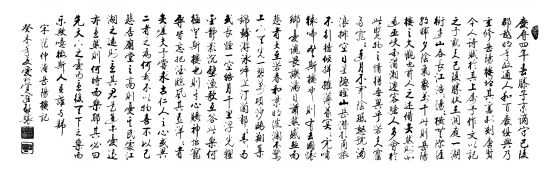 慶曆四年春滕子京謫守巴陵
郡越明年政通人和百廢俱興乃
重修岳陽樓增其舊制刻唐賢
今人詩賦於其上屬予作文以記
之予觀夫巴陵勝狀在洞庭一湖
銜遠山吞長江浩浩湯湯橫無際涯
朝暉夕陰氣象萬千此則岳陽
樓之大觀也前人之述備矣然則北
通巫峽南極瀟湘遷客騷人多會於
此覽物之情得無異乎若夫霪
雨霏霏連月不開陰風怒號濁
浪排空日星隱曜山岳潛形商旅
不行檣傾楫摧薄暮冥冥虎嘯
猿啼登斯樓也則有去國懷
鄉憂讒畏譏滿目蕭然感極而
悲者矣至若春和景明波瀾不驚
上下天光一碧萬頃沙鷗翔集
錦鱗游泳岸芷汀蘭郁郁青青而
或長煙一空皓月千里浮光躍
金靜影沉璧漁歌互答此樂何
極登斯樓也則有心曠神怡寵
辱皆忘把酒臨風其喜洋洋者
矣嗟夫予嘗求古仁人之心或異
二者之為何哉不以物喜不以己
悲居廟堂之高則憂其民處江
湖之遠則憂其君是進亦憂退
亦憂然則何時而樂耶其必曰
先天下之憂而憂後天下之樂而
樂歟噫微斯人吾誰與歸
宋范仲淹岳陽樓記